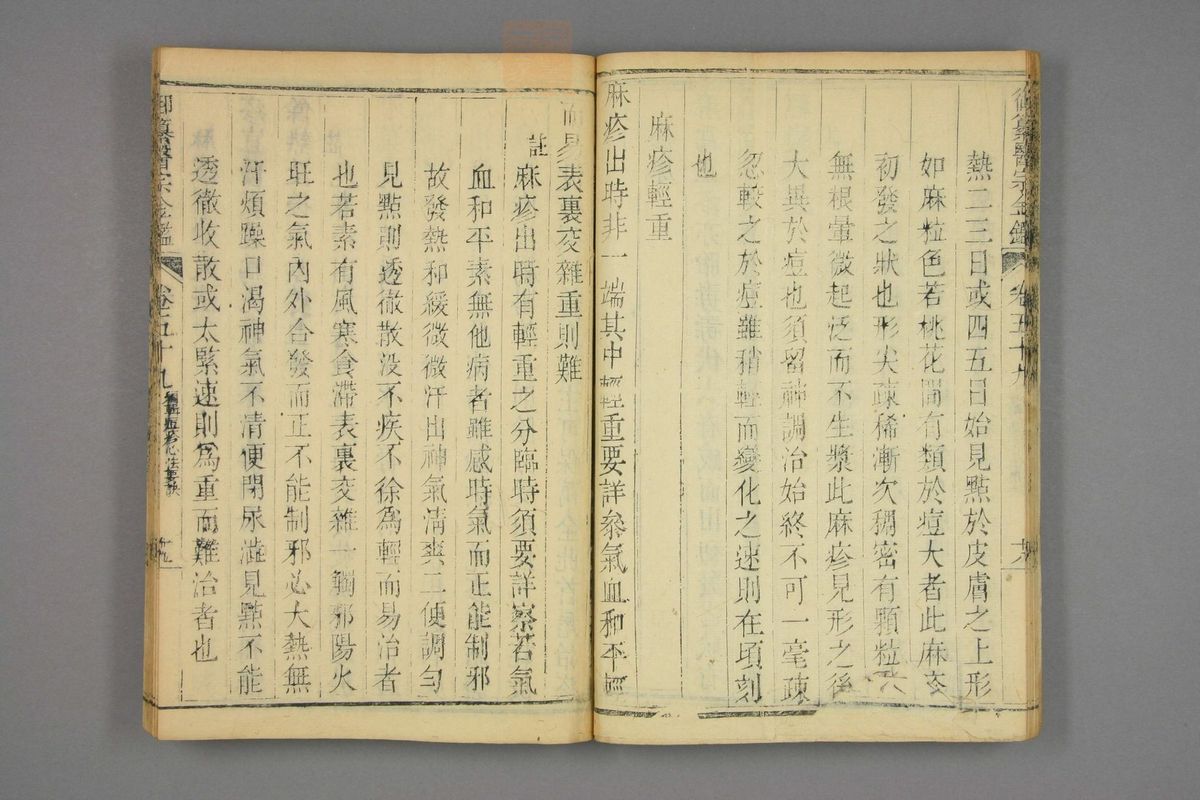 御纂醫宗金鑑 卷五十九
熱二三日或四五日始見點於皮膚之上形
如麻粒色若桃花間有類於痘大者此麻疹
初發之狀也形尖疎稀漸次稠密有顆粒
無根暈微起泛而不生漿此麻疹見形之後
大異於痘也須留神調治始終不可一毫疎
忽較之於痘雖稍輕而變化之速則在頃刻
也
麻疹輕重
麻疹出時非一端其中輕重要詳參氣血和平輕
而易表裏交雜重則難
註
麻疹出時有輕重之分臨時須要詳察若氣
血和平素無他病者雖感時氣而正能制邪
故發熱和緩微微汗出神氣清爽二便調勻
見點則透徹散沒不疾不徐為輕而易治者
也若素有風寒食滯表裏交雜一觸邪陽火
旺之氣內外合發而正不能制邪必大熱無
汗煩躁口渴神氣不清便閉尿澁見點不能
透徹收散或太緊速則為重而難治者也
御纂醫宗金鑑 卷五十九